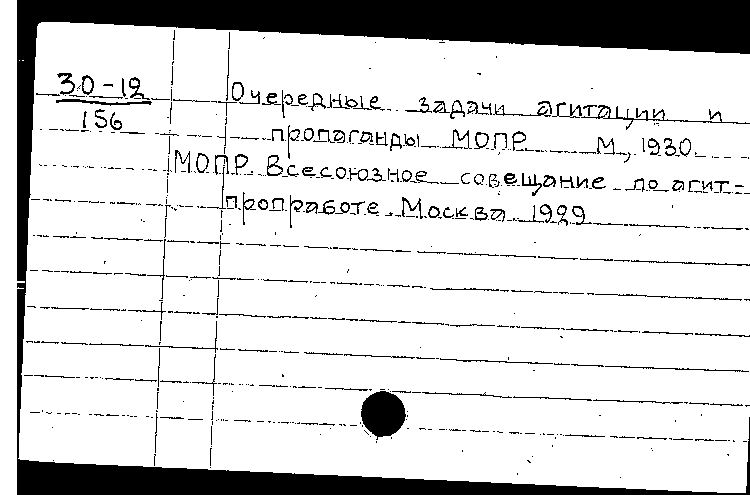 30-12
156
Очередные задачи агитации и
пропаганды МОПР. М., 1930.
МОПР. Всесоюзное совещание по агит-
пропработе. Москва. 1929